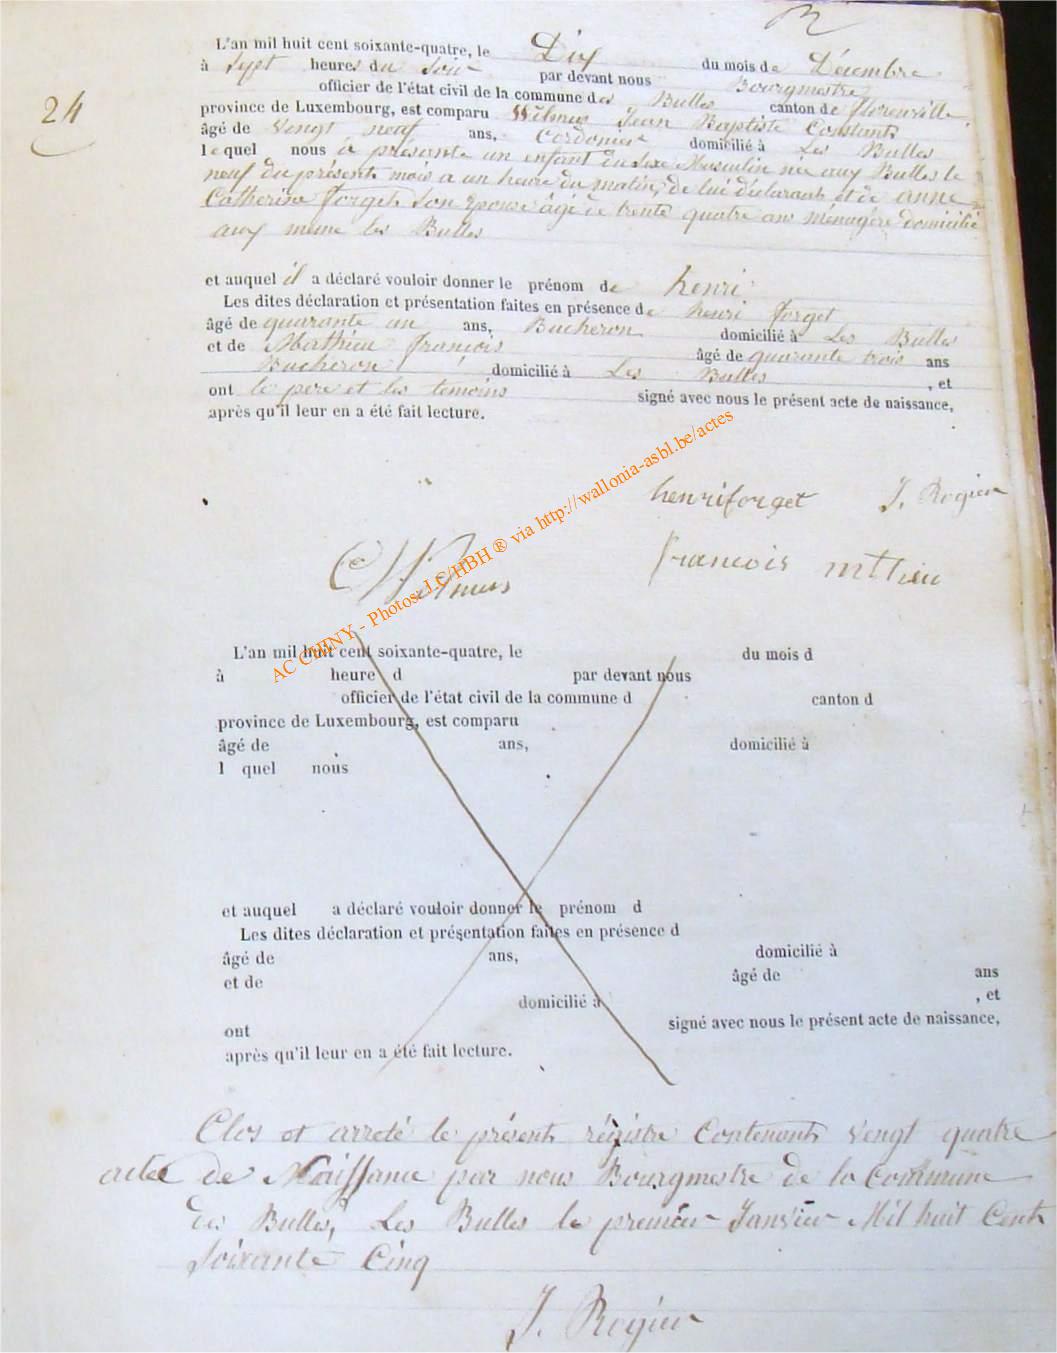 L'an mil huit cent soixante-quatre, le Dix du mois de Décembre
à Sept heures du Soir par devant nous Bourgmestre
officier de l'état civil de la commune des Bulles canton de florenville
24
province de Luxembourg, est comparu Wilmus Jean Baptiste Constant
âgé de Vengt neuf ans, Cordonier domicilié à Les Bulles
lequel nous a présente un enfant du sexe Masculin née aux Bulles le
neuf du présent mois a un heure du matin, de lui déclarant et de anne
Catherine forget Son épouse âgé de trente quatre ans ménagère domicilié
aux meme les Bulles
et auquel il a déclaré vouloir donner le prénom de henri
Les dites déclaration et présentation faites en présence de henri forget
âgé de quarante un ans, Bucheron domicilié à Les Bulles
et de Mathieu françois âgé de quarante trois ans
Bucheron domicilié à Les Bulles , et
ont le pere et les temoins signé avec nous le présent acte de naissance,
après qu'il leur en a été fait lecture.
henriforget J. Rogier
C Wilmus francois mthieu
AC CHINY - Photos: J.C/HBH ® via http://wallonia-asbl.be/actes
L'an mil huit cent soixante-quatre, le du mois d
à heure d par devant nous
officier de l'état civil de la commune d canton d
province de Luxembourg, est comparu
âgé de ans, domicilié à
l quel nous
et auquel a déclaré vouloir donner le prénom d
Les dites déclaration et présentation faites en présence d
âgé de ans, domicilié à
et de âgé de ans
domicilié à , et
ont signé avec nous le présent acte de naissance,
après qu'il leur en a été fait lecture.
Clos et arreté le présent régistre Contenant Vengt quatre
actee de Naissance par nous Bourgmestre de la Commune
des Bulles, Les Bulles le premier Janvier Mil huit Cent
Soixante Cinq
J. Rogier